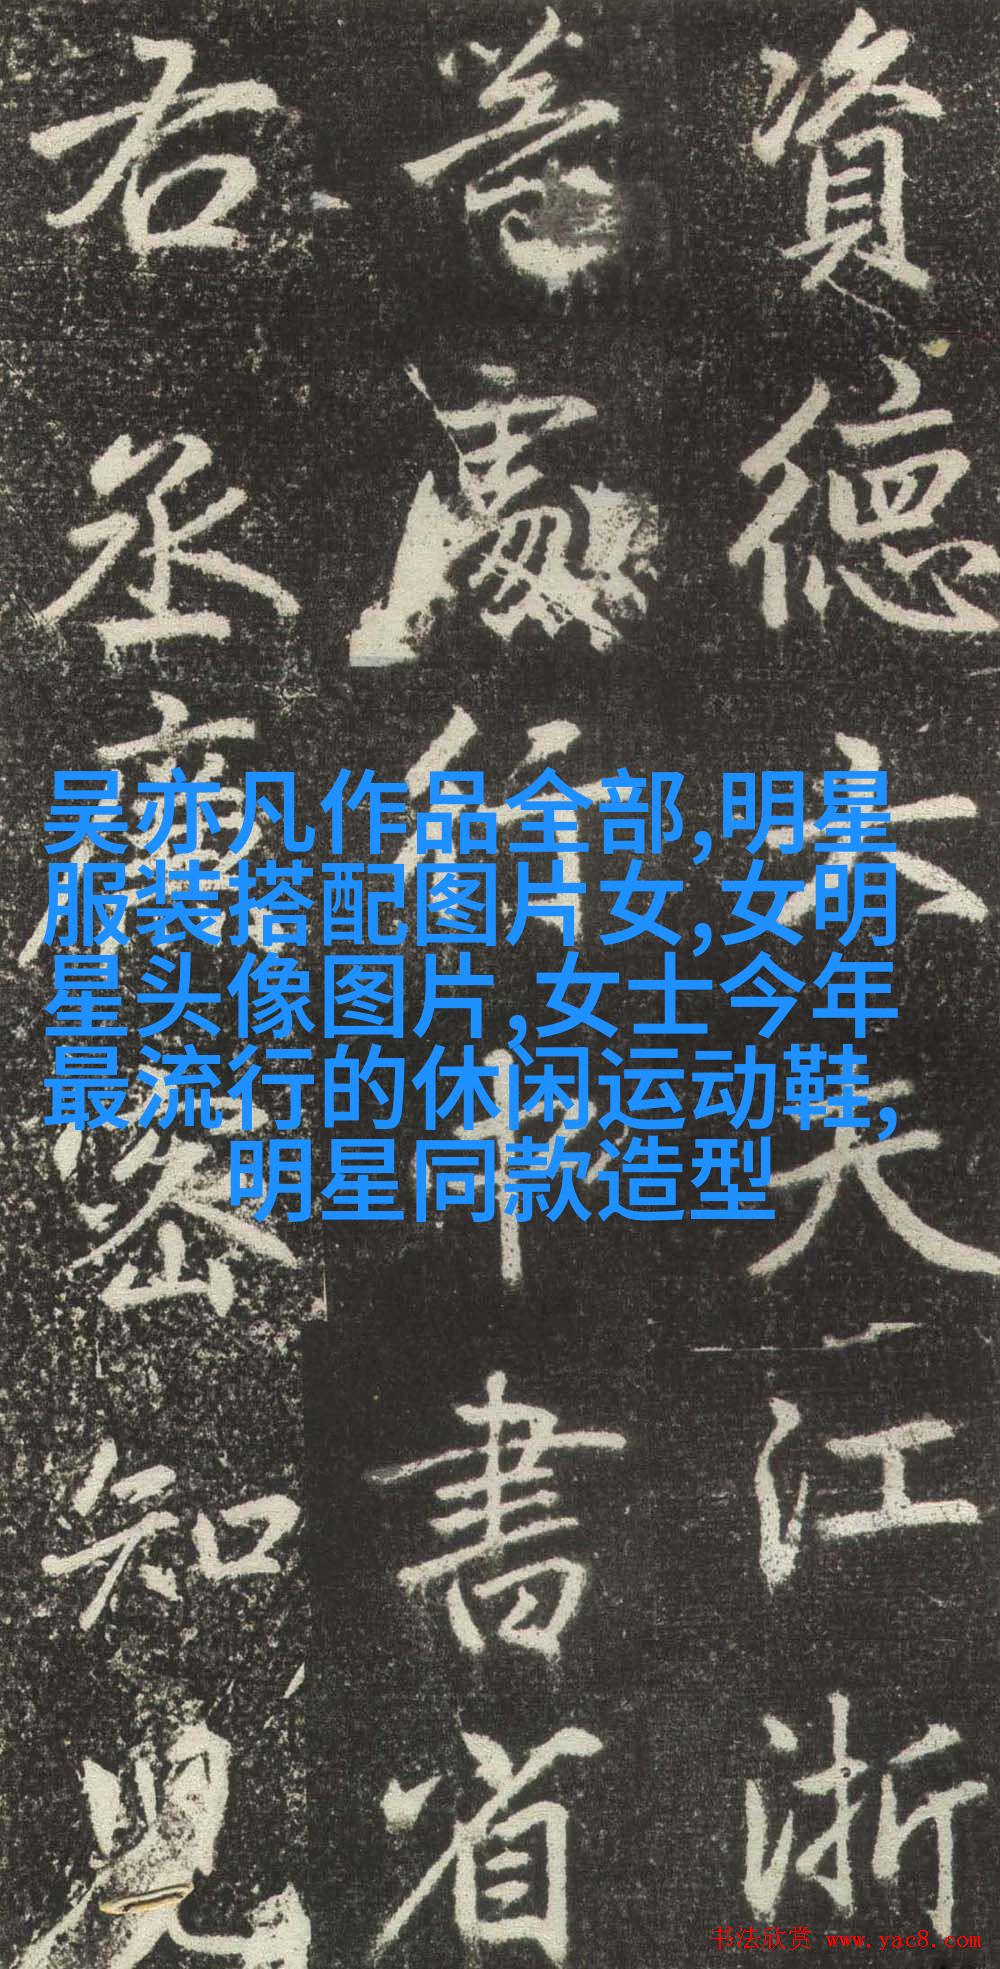 資德大夫江浙
等處行中書省
右丞知
吴亦凡作品全部,明星
服装搭配图片女,女明
星头像图片,女士今年
最流行的休闲运动鞋,
明星同款造型
书法欣赏 www.yac8.com